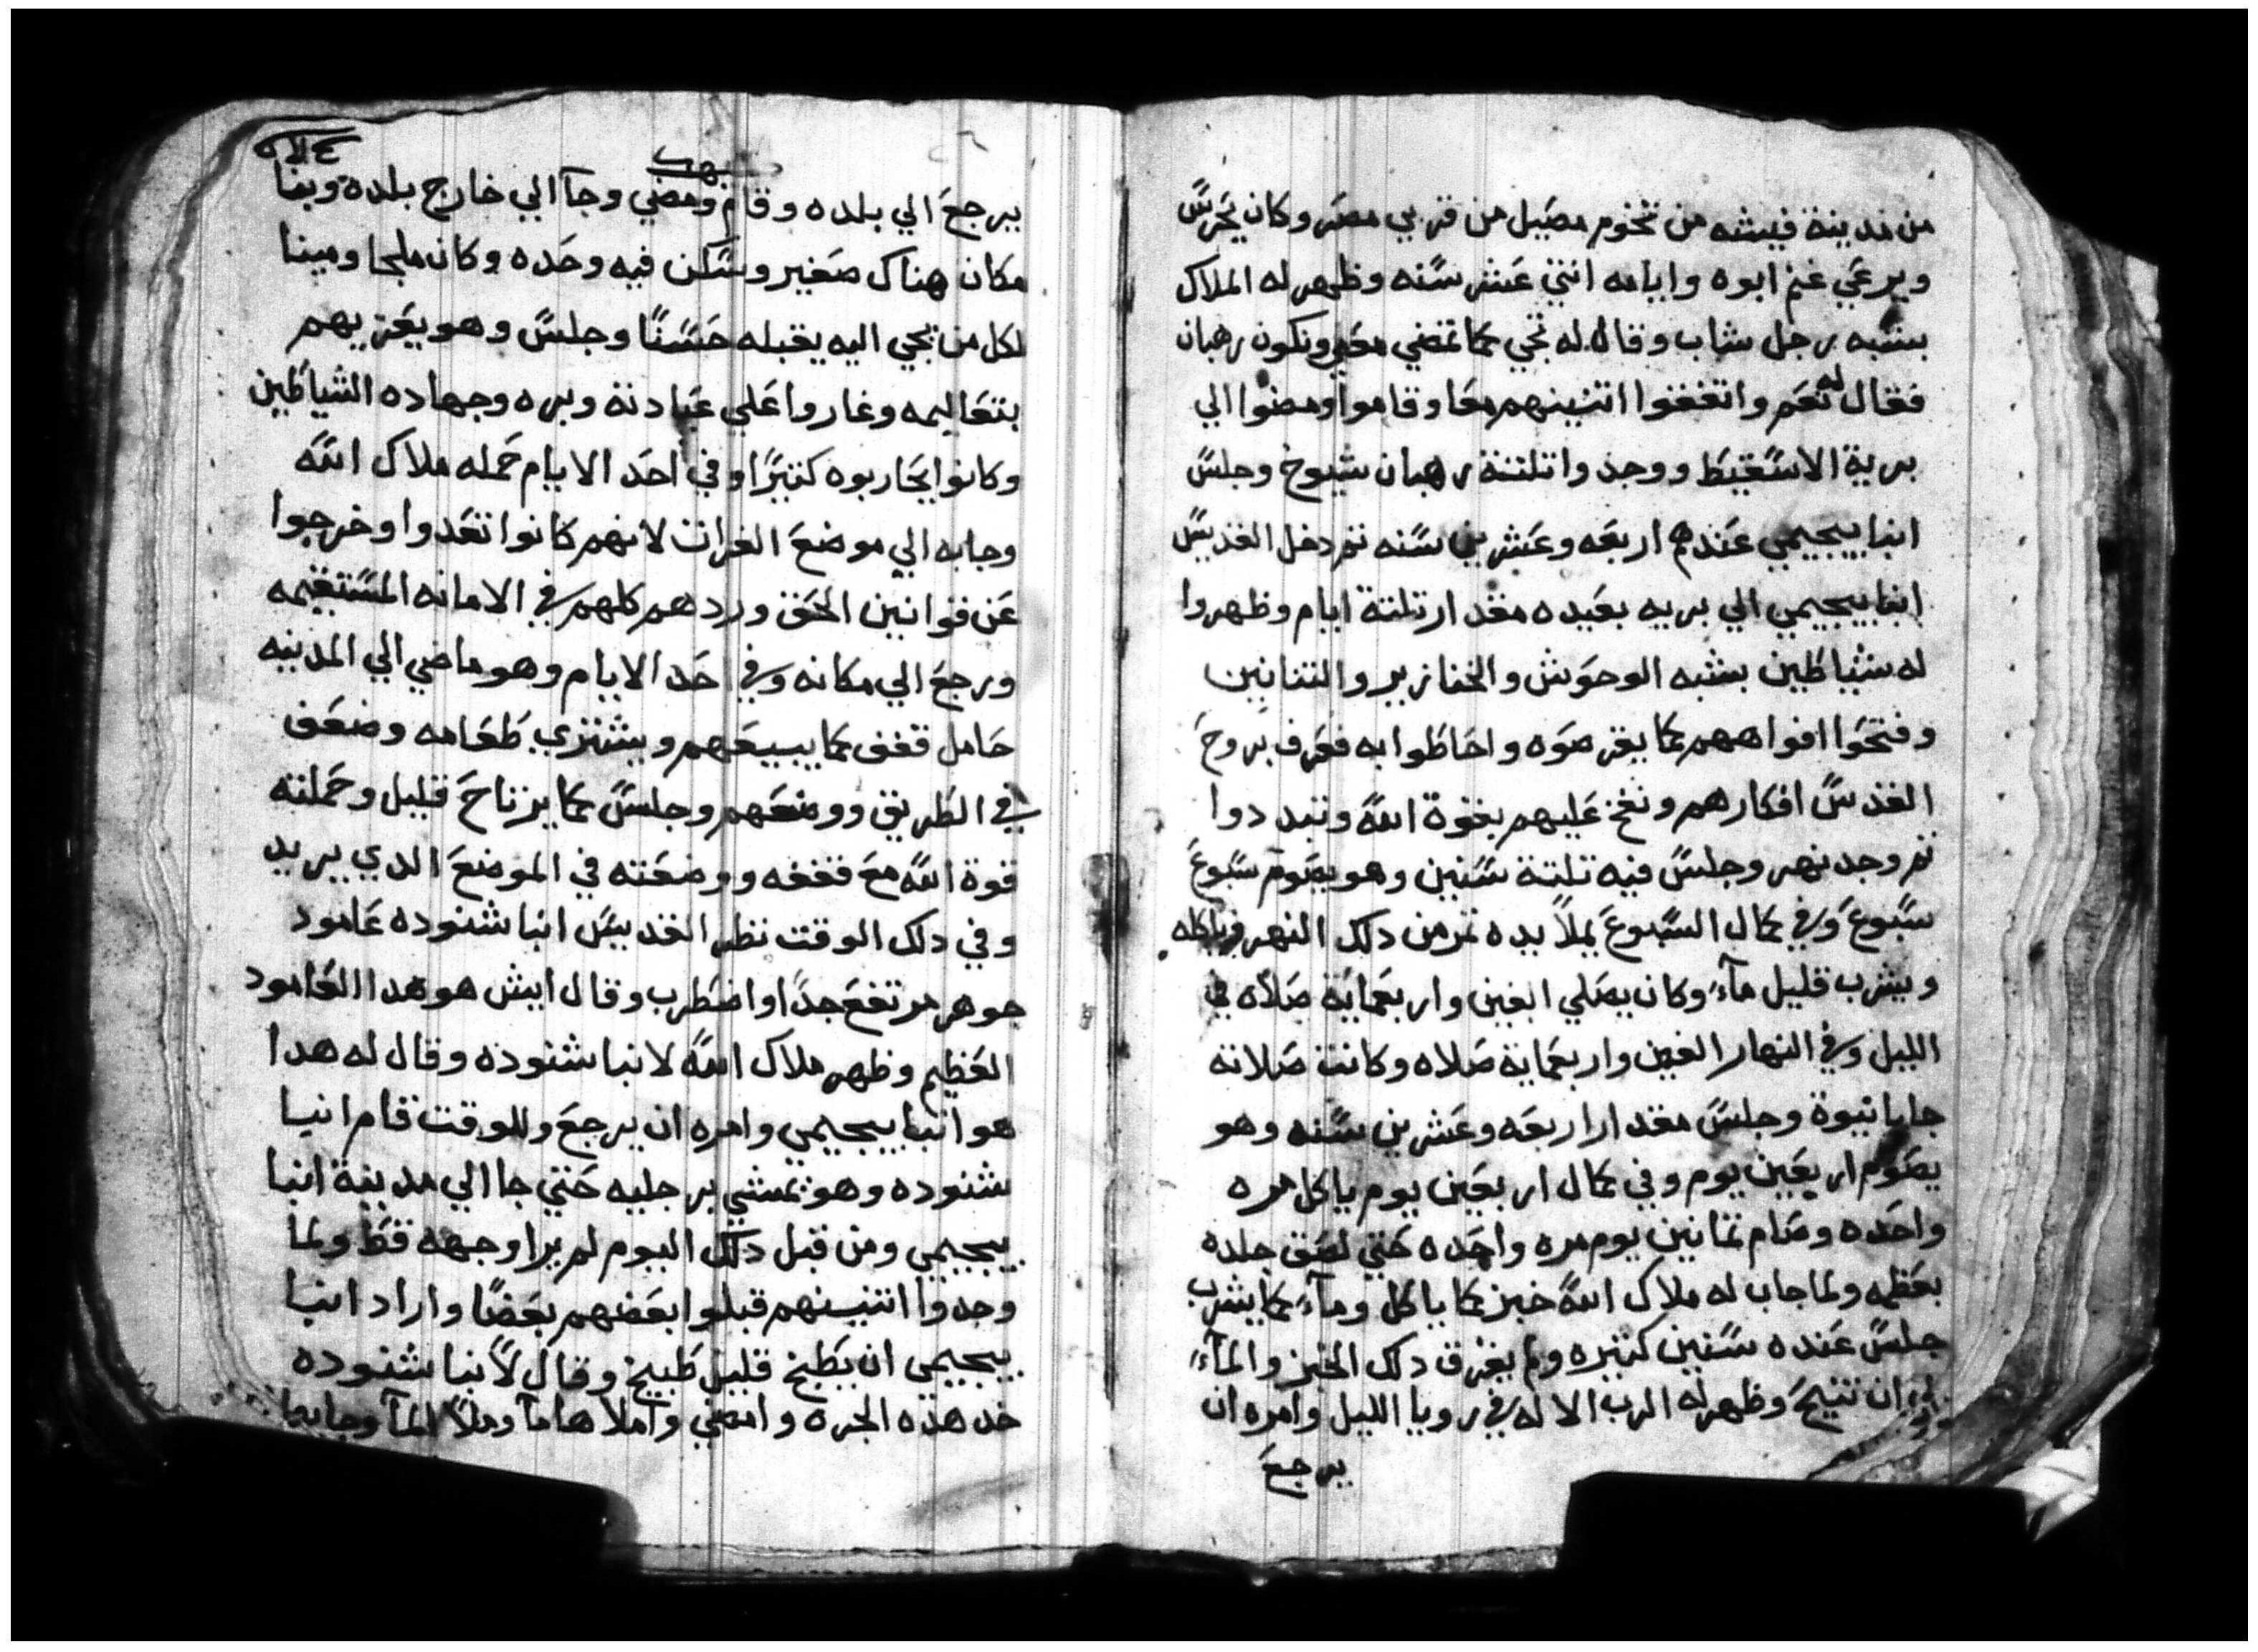 من مدينة فيشه من تخوم مصيل من قريي مصر وكان يحرس
ويرعي غنم ابوه وايامه اتني عشر سنه وظهر له الملاك
بشبه رجل شاب وقال له تجي كما تمضي معي ونكون رهبان
فقال له نعم واتفقوا اتنينهم معا وقاموا ومضوا الي
برية الاسقيط ووجدوا تلتة رهبان شيوخ وجلس
انبا بيجيمي عندهم اربعه وعشرين سنه تم دخل القديس
انبا بيجيمي الي بريه بعيده مقدار تلتة ايام وظهروا
له شياطين بشبه الوحوش والخنازير والتنانين
وفتحوا افواههم كما يقرضوه واحاطوا به فعرف بروح
القدس افكارهم ونفخ عليهم بقوة الله وتبددوا
تم وجد نهر وجلس فيه تلتة سنين وهو يصوم سبوع
سبوع وفي كمال السبوع يملأ يده تمر من دلك النهر وياكله
ويشرب قليل مآء وكان يصلي الفين واربعماية صلاه في
الليل وفي النهار الفين واربعماية صلاه وكانت صلاته
جابا نيوة وجلس مقدار اربعه وعشرين سنه وهو
يصوم اربعين يوم وفي كمال اربعين يوم ياكل مره
واحده وصام تمانين يوم مره واحده حتي لصق جلده
بعظمه ولما جاب له ملاك الله خبز كما ياكل ومآء كما يشرب
جلس عنده سنين كتيره ولم يفرق دلك الخبز والمآء
الي ان تنيح وظهر له الرب الاله في رويا الليل وامره ان
يرجع
يرجع الي بلده وقام ومضي وجآ الي خارج بلده وبنا
مكان هناك صغير وسكن فيه وحده وكان ملجا ومينا
لكل من يجي اليه يقبله حسنًا وجلس وهو يعزيهم
بتعاليمه وغاروا علي عبادته وبره وجهاده الشياطين
وكانوا يحاربوه كتيرًا وفي احد الايام حمله ملاك الله
وجابه الي موضع الفرات لانهم كانوا تعدوا وخرجوا
عن قوانين الحق وردهم كلهم في الامانه المستقيمه
ورجع الي مكانه وفي احد الايام وهو ماضي الي المدينه
حامل قفف كما يبيعهم ويشتري طعامه وضعف
في الطريق ووضعهم وجلس كما يرتاح قليل وحملته
قوة الله مع قففه ووضعته في الموضع الدي يريد
وفي دلك الوقت نظر القديس انبا شنوده عامود
جوهر مرتفع جدًا واضطرب وقال ايش هو هدا العامود
العظيم وظهر ملاك الله لانبا شنوده وقال له هدا
هو انبا بيجيمي وامره ان يرجع وللوقت قام انبا
شنوده وهو تمشي برجليه حتي جا الي مدينة انبا
بيجيمي ومن قبل دلك اليوم لم يرا وجهه قط ولما
وجدوا اتنينهم قبلوا بعضهم بعضًا واراد انبا
بيجيمي ان يطبخ قليل طبيخ وقال لأنبا شنوده
خد هده الجره وامضي واملاها مآ وملأ المآ وجابها